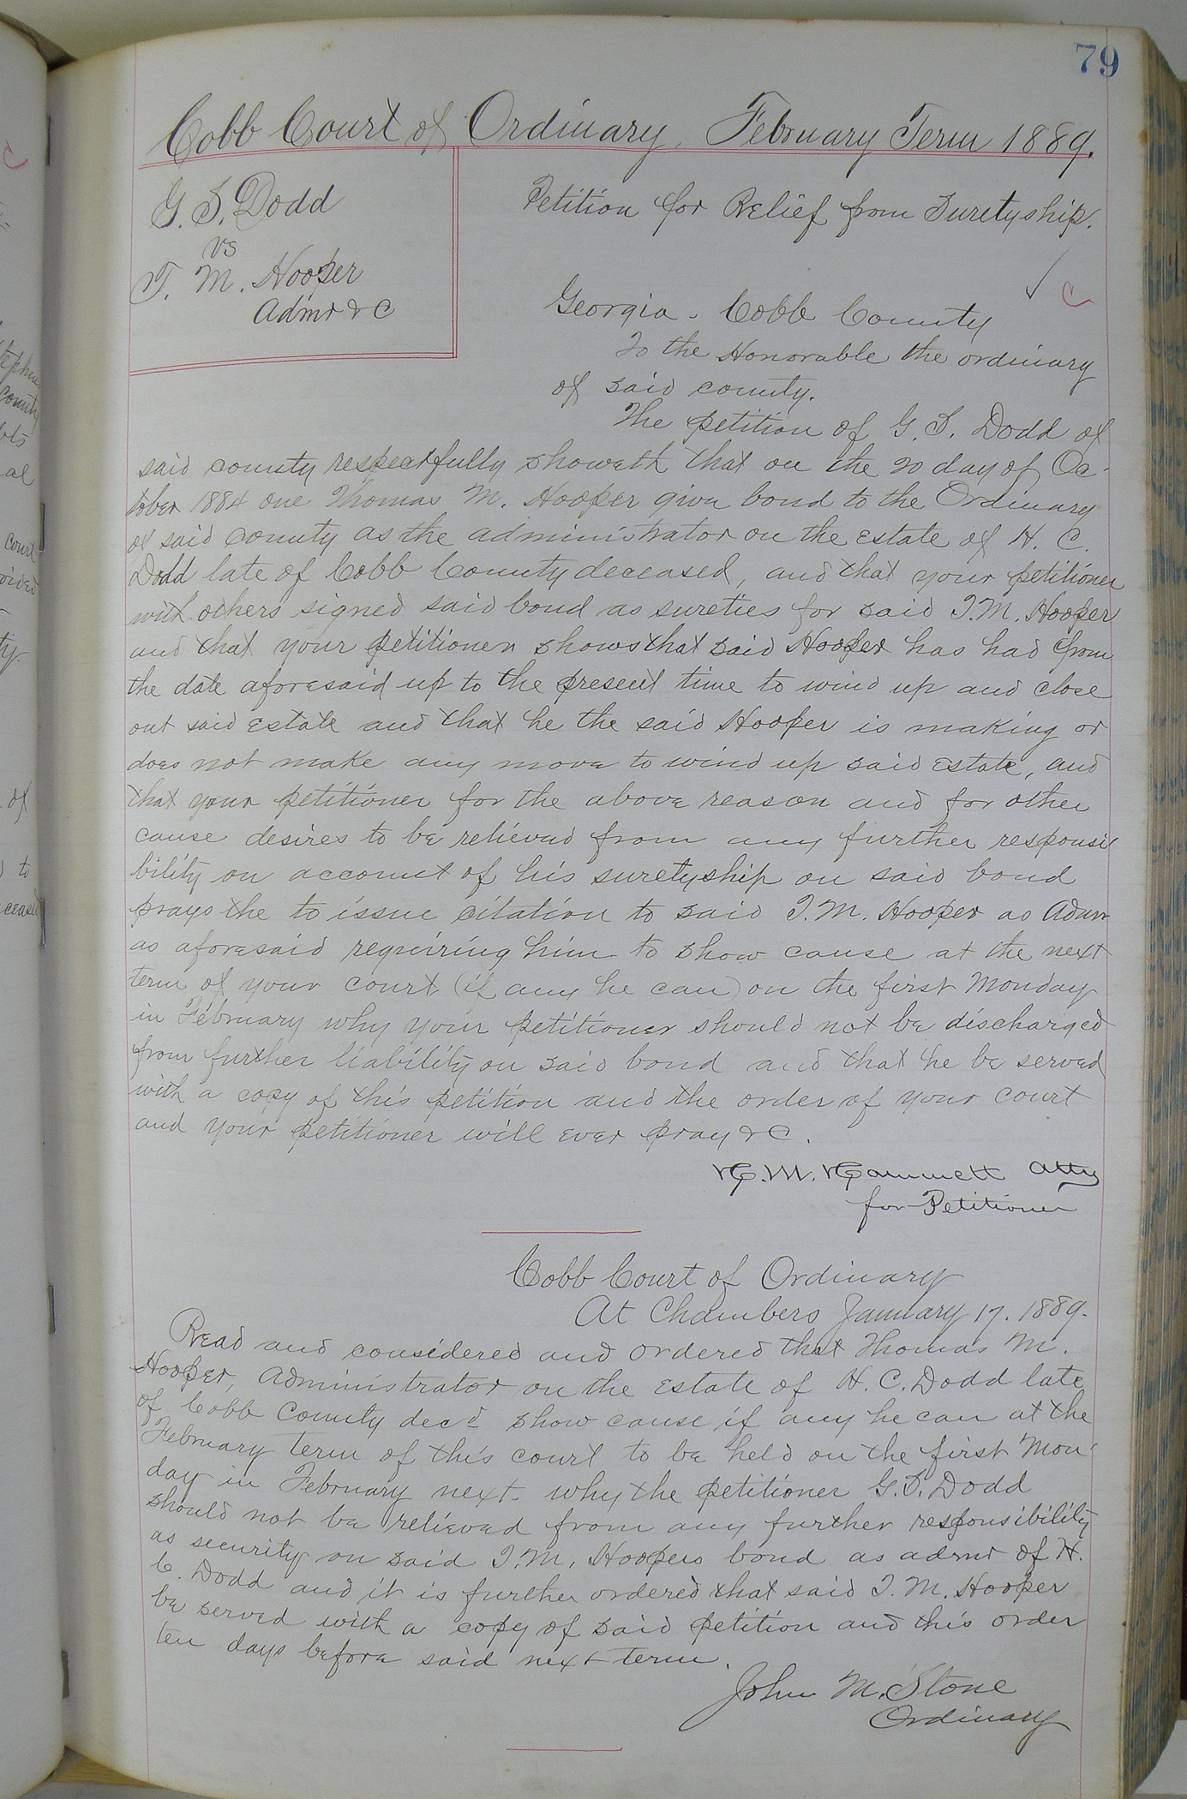 79
Cobb Court of Ordinary, February Term 1889.
G. S. Dodd
vs
T. M. Hooper
Admr &c
Petition for Relief from Suretyship.
Georgia - Cobb County
To the Honorable the ordinary
of said county.
The petition of G. S. Dodd of
said county respectfully showeth that on the 20 day of Oc-
tober 1884 one Thomas M. Hooper give bond to the Ordinary
of said county as the administrator on the estate of H. C.
Dodd late of Cobb County deceased, and that your petitioner
with others signed said bond as sureties for said T. M. Hooper
and that your petitioner shows that said Hooper has had from
the date aforesaid up to the present time to wind up and close
out said estate and that he the said Hooper is making or
does not make any move to wind up said estate, and
that your petitioner for the above reason and for other
cause desires to be relieved from any further responsi
bility on account of his suretyship on said bond
prays the to issue citation to said T. M. Hooper as Admr
as aforesaid requiring him to show cause at the next
term of your court (if any he can) on the first Monday
in February why your petitioner should not be discharged
from further liability on said bond and that he be served
with a copy of this petition and the order of your court
and your petitioner will ever pray &c.
H. M. Hammett Atty
for Petitioner
Cobb Court of Ordinary
At Chambers January 17. 1889.
Read and considered and ordered that Thomas M.
Hooper, Administrator on the Estate of H. C. Dodd late
of Cobb County decd show cause if any he can at the
February term of this court to be held on the first Mon-
day in February next - why the petitioner G. S. Dodd
should not be relieved from any further responsibility
as security on said T. M. Hoopers bond as admr of H.
C. Dodd and it is further ordered that said T. M. Hooper
be served with a copy of said petition and this order
ten days before said next term.
John M. Stone
Ordinary